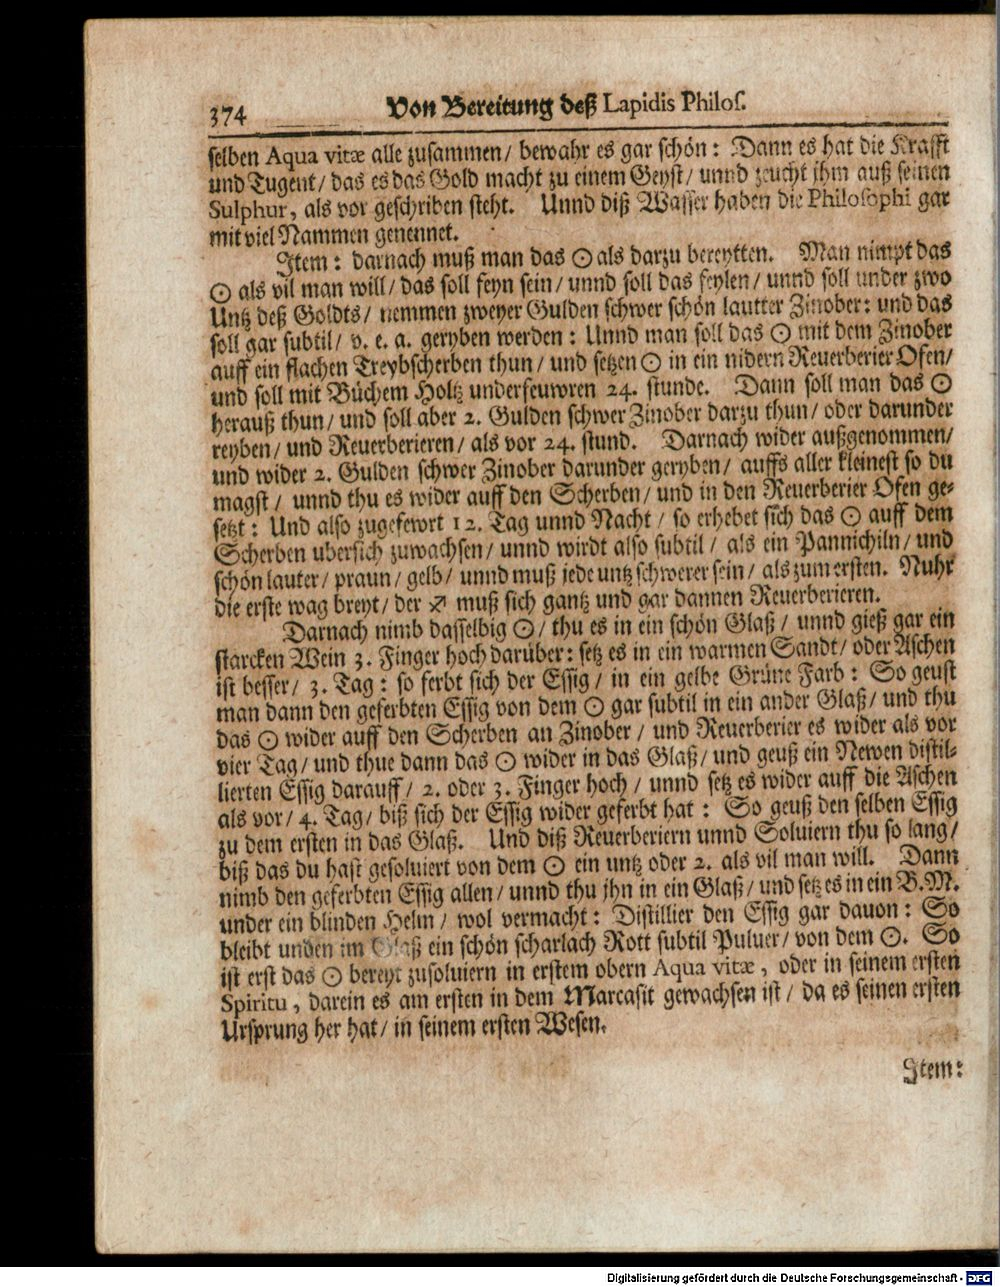 374 Von Bereitung deß Lapidis Philos.
selben Aqua vitæ alle zusammen/ bewahr es gar schön: Dann es hat die Krafft
und Tugent/ das es das Gold macht zu einem Geyst/ unnd zeucht jhm auß seinen
Sulphur, als vor geschriben steht. Unnd diß Wasser haben die Philosophi gar
mit viel Nammen genennet.
Item: darnach muß man das ☉ als darzu bereytten. Man nimpt das
☉ als vil man will/ das soll feyn sein/ unnd soll das feylen/ unnd soll under zwo
Untz deß Goldts/ nemmen zweyer Gulden schwer schön lautter Zinober: und das
soll gar subtil/ v. e. a. geryben werden: Unnd man soll das ☉ mit dem Zinober
auff ein flachen Treybscherben thun/ und setzen ☉ in ein nidern Reuerberier Ofen/
und soll mit Büchem Holtz underfeuwren 24. stunde. Dann soll man das ☉
herauß thun/ und soll aber 2. Gulden schwer Zinober darzu thun/ oder darunder
reyben/ und Reuerberieren/ als vor 24. stund. Darnach wider außgenommen/
und wider 2. Gulden schwer Zinober darunder geryben/ auffs aller kleinest so du
magst/ unnd thu es wider auff den Scherben/ und in den Reuerberier Ofen ge-
setzt: Und also zugefewrt 12. Tag unnd Nacht/ so erhebet sich das ☉ auff dem
Scherben ubersich zuwachsen/ unnd wirdt also subtil/ als ein Pannichiln/ und
schön lauter/ praun/ gelb/ unnd muß jede untz schwerer sein/ als zum ersten. Nuhr
die erste wag breyt/ der ♐ muß sich gantz und gar dannen Reuerberieren.
Darnach nimb dasselbig ☉/ thu es in ein schön Glaß/ unnd gieß gar ein
starcken Wein 3. Finger hoch darüber: setz es in ein warmen Sandt/ oder Aschen
ist besser/ 3. Tag: so ferbt sich der Essig/ in ein gelbe Grüne Farb: So geust
man dann den geferbten Essig von dem ☉ gar subtil in ein ander Glaß/ und thu
das ☉ wider auff den Scherben an Zinober/ und Reuerberier es wider als vor
vier Tag/ und thue dann das ☉ wider in das Glaß/ und geuß ein Newen distil-
lierten Essig darauff/ 2. oder 3. Finger hoch/ unnd setz es wider auff die Aschen
als vor/ 4. Tag/ biß sich der Essig wider geferbt hat: So geuß den selben Essig
zu dem ersten in das Glaß. Und diß Reuerberiern unnd Soluiern thu so lang/
biß das du hast gesoluiert von dem ☉ ein untz oder 2. als vil man will. Dann
nimb den geferbten Essig allen/ unnd thu jhn in ein Glaß/ und setz es in ein B.M.
under ein blinden Helm/ wol vermacht: Distillier den Essig gar dauon: So
bleibt unden im Glaß ein schön scharlach Rott subtil Puluer/ von dem ☉. So
ist erst das ☉ bereyt zusoluiern in erstem obern Aqua vitæ, oder in seinem ersten
Spiritu, darein es am ersten in dem Marcasit gewachsen ist/ da es seinen ersten
Ursprung her hat/ in seinem ersten Wesen.
Item:
Digitalisierung gefördert durch die Deutsche Forschungsgemeinschaft - DFG